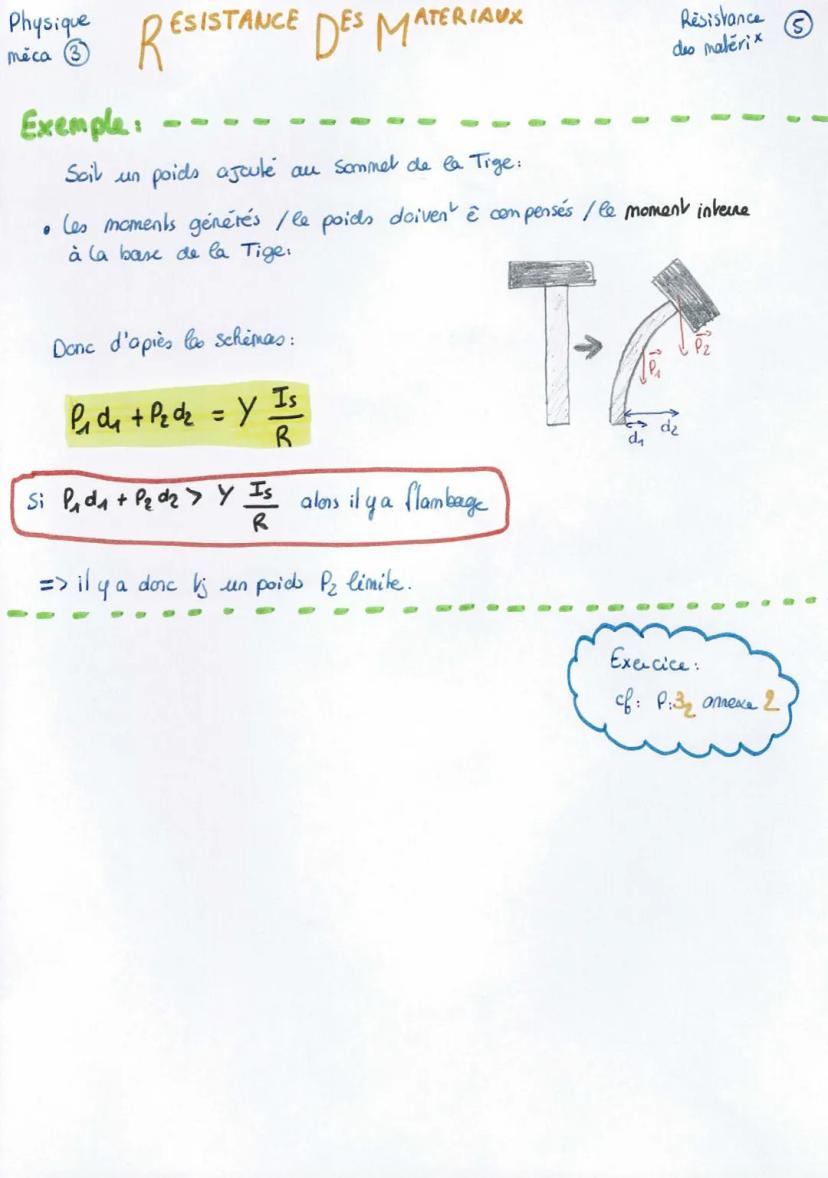 Physique
méca ③
RESISTANCE DES MATERIAUX
Résistance
des matéri^x
⑤
Exemple:
Soit un poids ajouté au sommet de la Tige:
• Les moments générés / le poids doiven^t ê compensés / le moment interne
à la base de la Tige.
Donc d'après les schémas:
P₁ d₁ + P₂ d₂ = Y Is/R
Si P₁ d₁ + P₂ d₂ > Y Is/R alors il y a flambage
=> il y a donc tj un poids P₂ limite.
P₁
P₂
d₁
d₂
Exercice:
cf: P:32 annexe 2